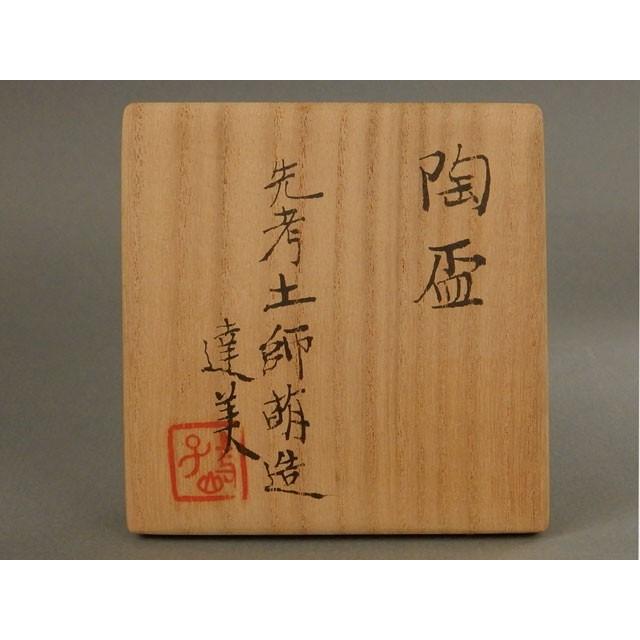 陶盃
先考土師萌造
達美